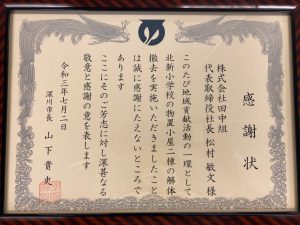 感謝状
株式会社田中組
代表取締役社長 松村敏文様
このたび地域貢献活動の一環として
北新小学校の物置小屋二棟の解体
撤去を実施いただきましたこと
は誠に感謝にたえないところで
あります
ここにそのご芳志に対し深甚なる
敬意と感謝の意を表します
令和三年七月二日
深川市長 山下貴史